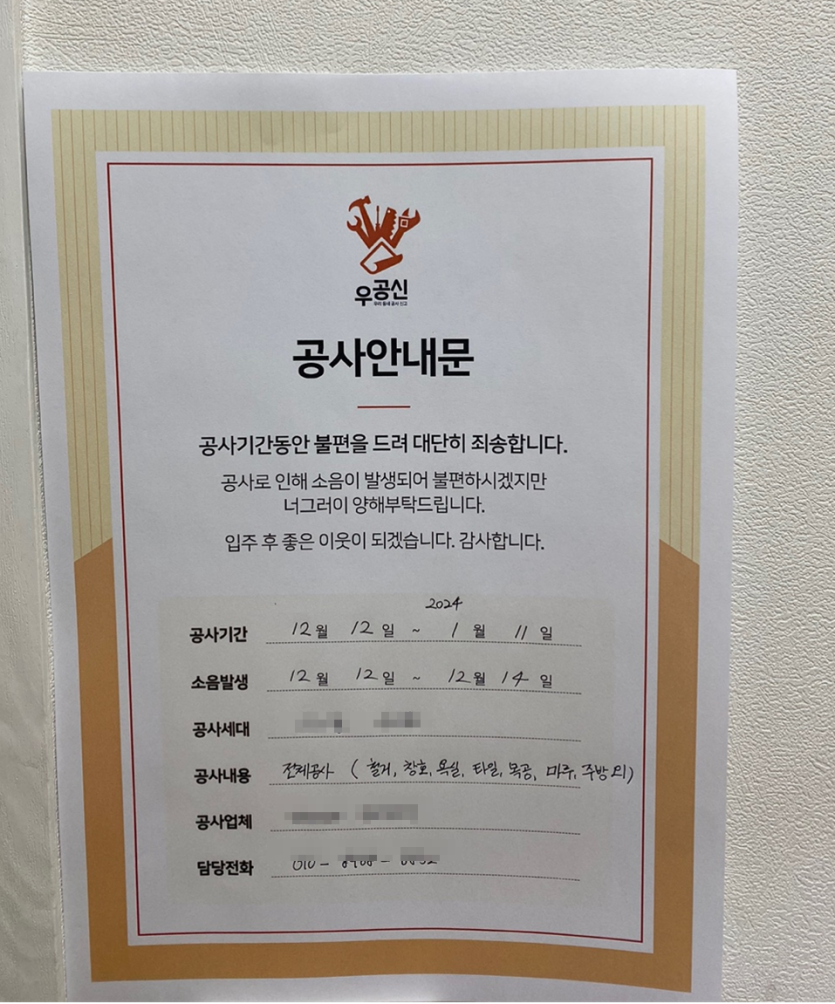 우공신
우리 동네 공사 신고
공사안내문
공사기간동안 불편을 드려 대단히 죄송합니다.
공사로 인해 소음이 발생되어 불편하시겠지만
너그러이 양해부탁드립니다.
입주 후 좋은 이웃이 되겠습니다. 감사합니다.
2024
공사기간 12월 12일 ~ 1월 11일
소음발생 12월 12일 ~ 12월 14일
공사세대
공사내용 전체공사 ( 철거, 창호, 욕실, 타일, 목공, 마루, 주방 외)
공사업체
담당전화 010 -